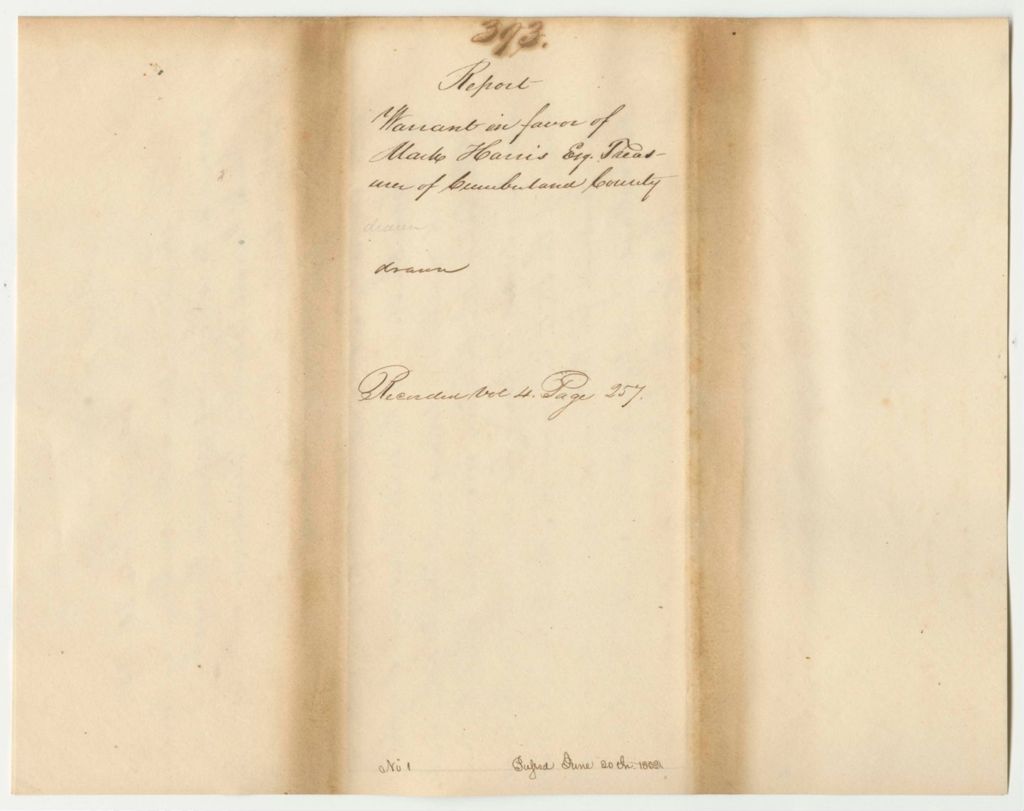 393.
Report
Warrant in favor of
Mark Harris Esq. Treas-
urer of Cumberland County
drawn
drawn
Recorded Vol 4. Page 257.
No 1
June 20th